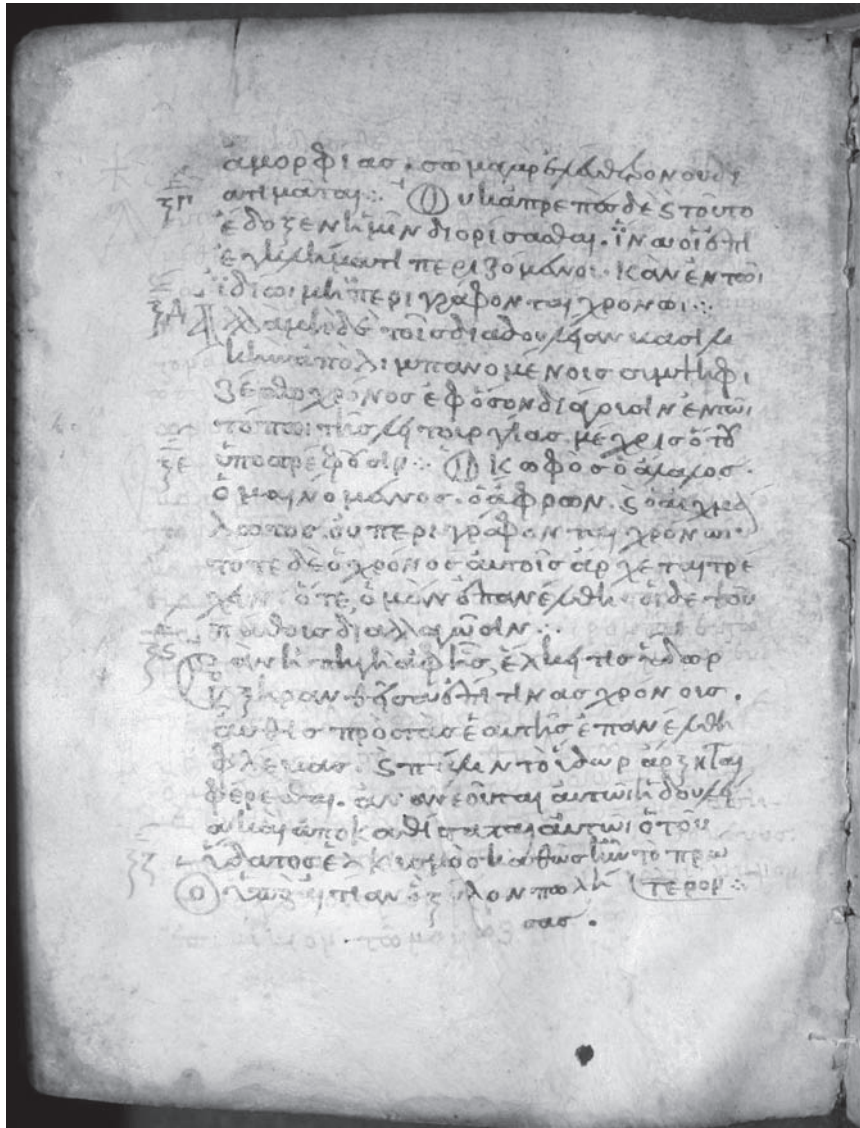 ἀμορφίας· σῶμα γὰρ ἐλεύθερον οὐ δι
ξγ ατιμᾶται :· Οὐκ ἀπρεπῶς δὲ ϛ τοῦτο
ἔδοξεν ἡμῖν διορίσασθαι. ἵνα οἱ ἐπὶ
ἐγκλήματι περιζόμενοι· κἂν ἐν τῶι
ἰδίωι μὴ περιγράφονται χρόνωι :·
ξδ Ἀλλὰ μὴ δὲ τοῖς διὰ δουλείαν βασιλι
κὴν ἀπολιμπανομένοις συμψηφι
ζέσθω χρόνος ἐφ' ὅσον διάγουσιν ἐν τῶι
τόπωι τῆς λειτουργίας. μέχρις ὅτου
ξε ὑποστρέψουσιν :· Ὁ κωφὸς ὁ ἄλαλος·
ὁ μαινόμενος· ὁ ἄφρων· ϛ ὁ αἰχμά
λωτος· οὐ περιγράφονται χρόνωι·
τότε δὲ ὁ χρόνος αὐτοῖς ἄρχεται τρέ
χειν· ὅτε, ὁ μὲν ἐπανέλθη· οἱ δὲ τοῦ
πάθους διαλλαγῶσιν :·
ξϛ Ἐὰν ἡ πηγὴ ἀφ' ἧς ἕλκει τις ὕδωρ
ξηρανθεῖσα ἐπί τινας χρόνους.
αὖθις πρὸς τὰς ἑαυτῆς ἐπανέλθη
φλέβας. ϛ πάλιν τὸ ὕδωρ ἄρξηται
φέρεσθαι. ἀνανεοῦται αὐτῶι ἡ δουλεί
α καὶ ἀποκαθίσταται αὐτῶι ὁ τοῦ
ξζ ὕδατος ἑλκυσμὸς καθὼς ἦν τὸ πρω
Ὁ ξύλον πωλή τερον :·
σας.